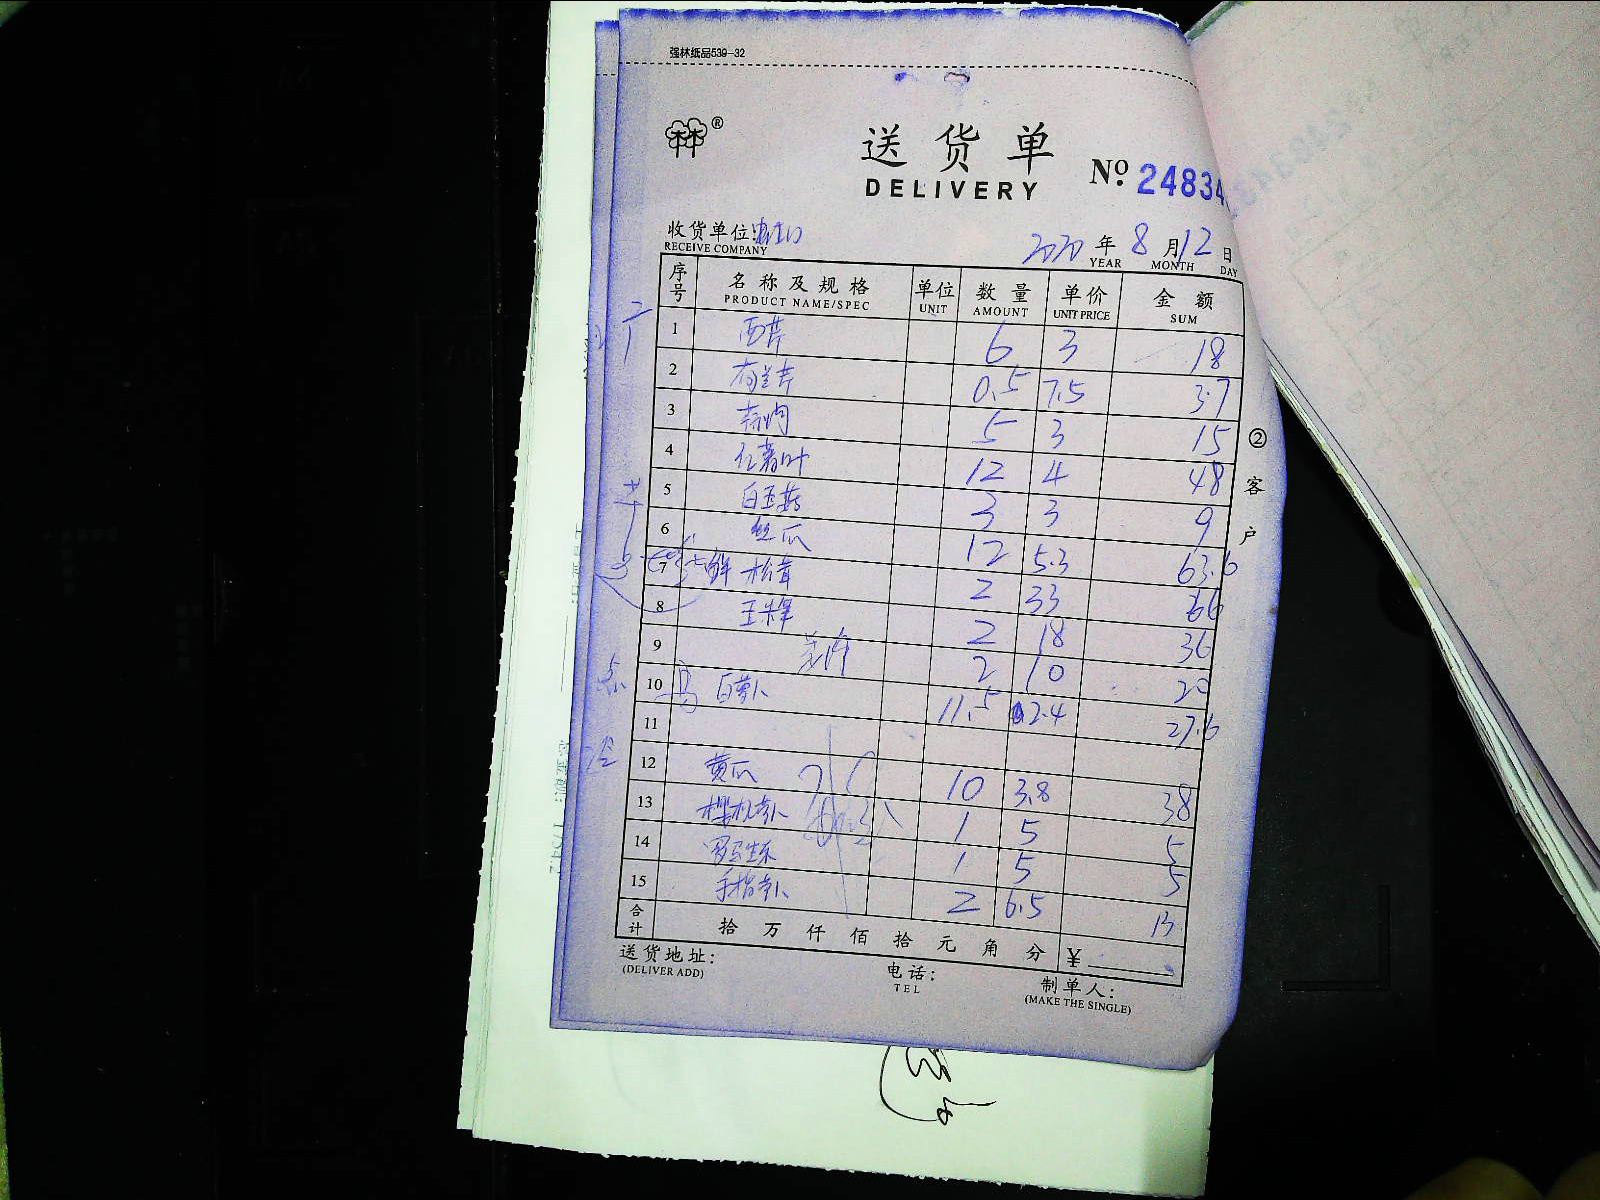 强林纸品539-32
送货单
DELIVERY
Nº 24834
收货单位:
RECEIVE COMPANY
2020 年 8 月 12 日
YEAR MONTH DAY
序号 名称及规格 单位 数量 单价 金额
PRODUCT NAME/SPEC UNIT AMOUNT UNIT PRICE SUM
1 西芹 6 3 18
2 0.5 7.5 3.7
3 5 3 15
4 红薯叶 12 4 48
5 白玉菇 3 3 9
6 丝瓜 12 5.3 63.6
7 鲜松茸 2 33 66
8 2 18 36
9 2 10 20
10 白萝卜 11.5 2.4 27.6
11
12 黄瓜 10 3.8 38
13 樱桃萝卜 1 5 5
14 罗马生菜 1 5 5
15 手指萝卜 2 6.5 13
合计 拾 万 仟 佰 拾 元 角 分 ¥
送货地址:
(DELIVER ADD)
电话:
TEL
制单人:
(MAKE THE SINGLE)
② 客户